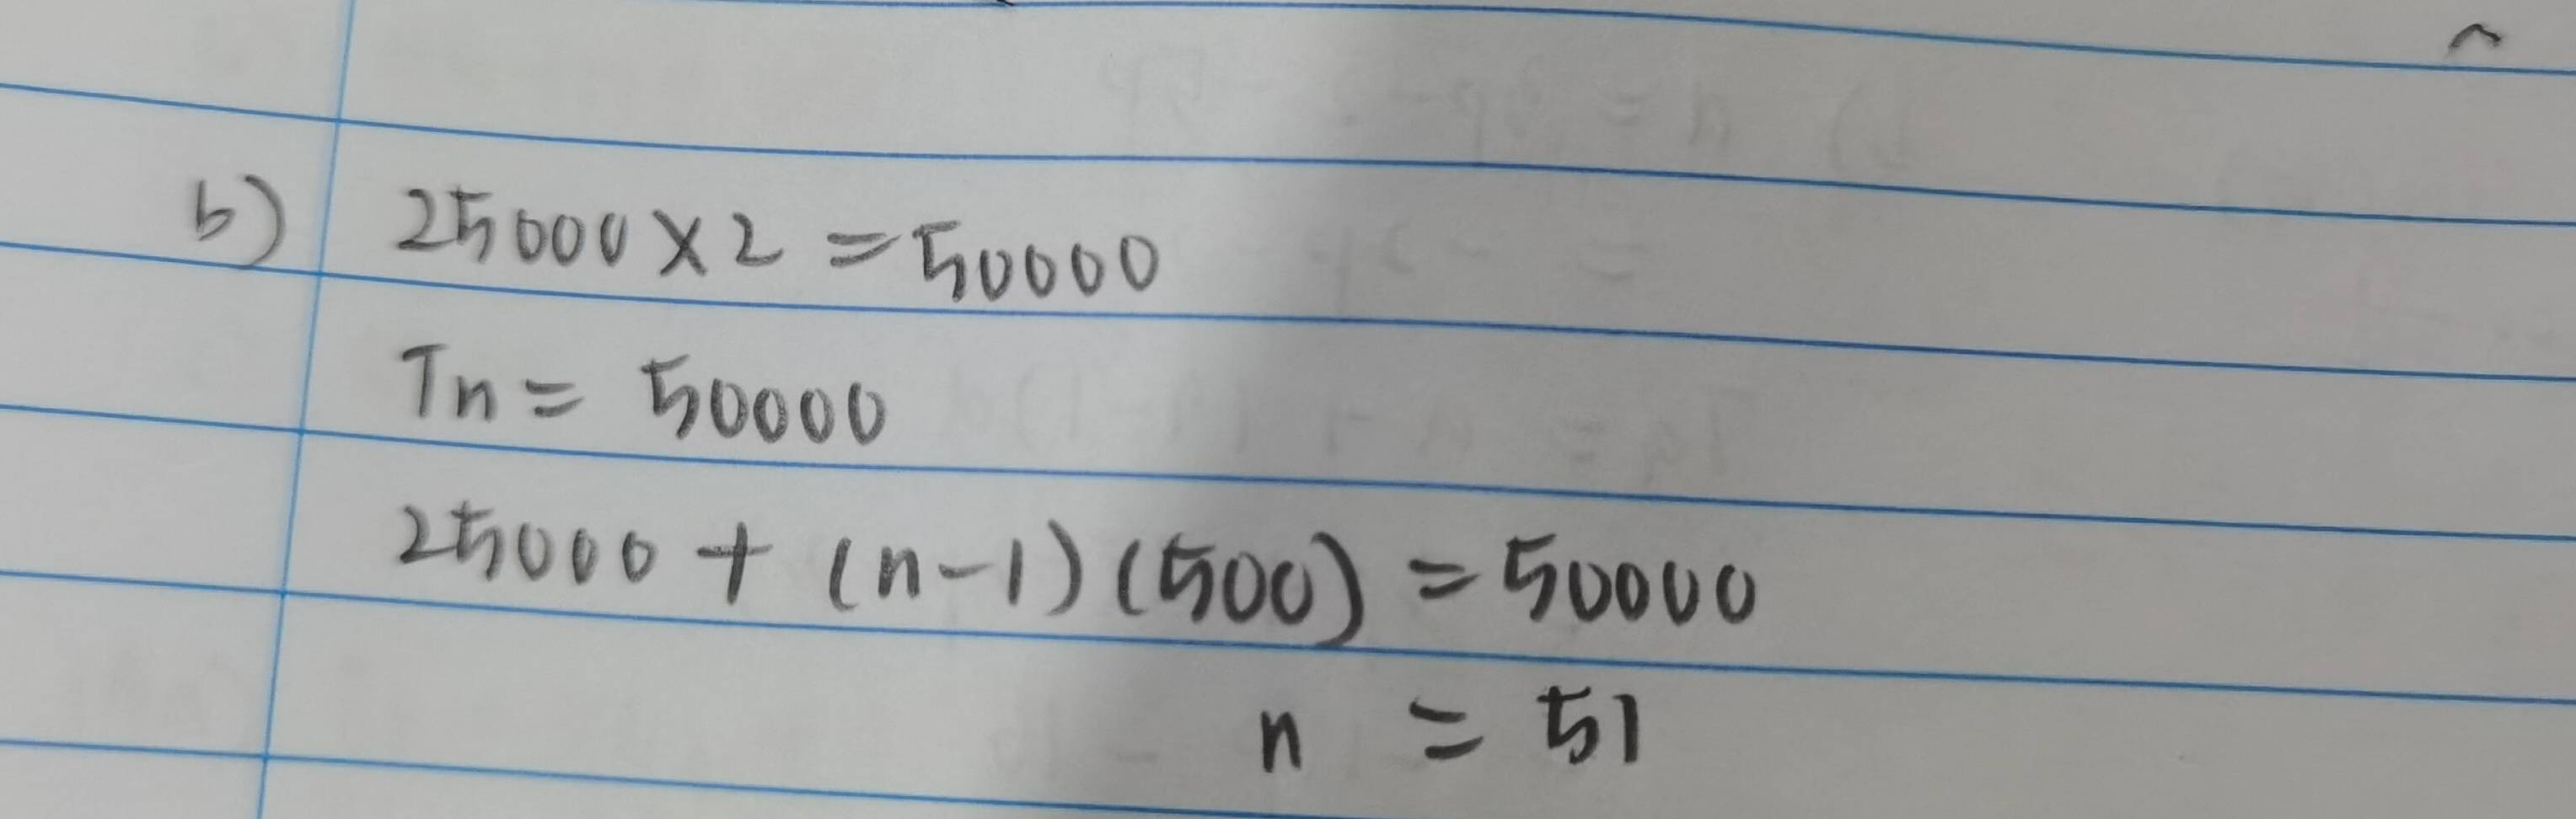 b) 25000 × 2 = 50000
Tn = 50000
25000 + (n-1)(500) = 50000
n = 51